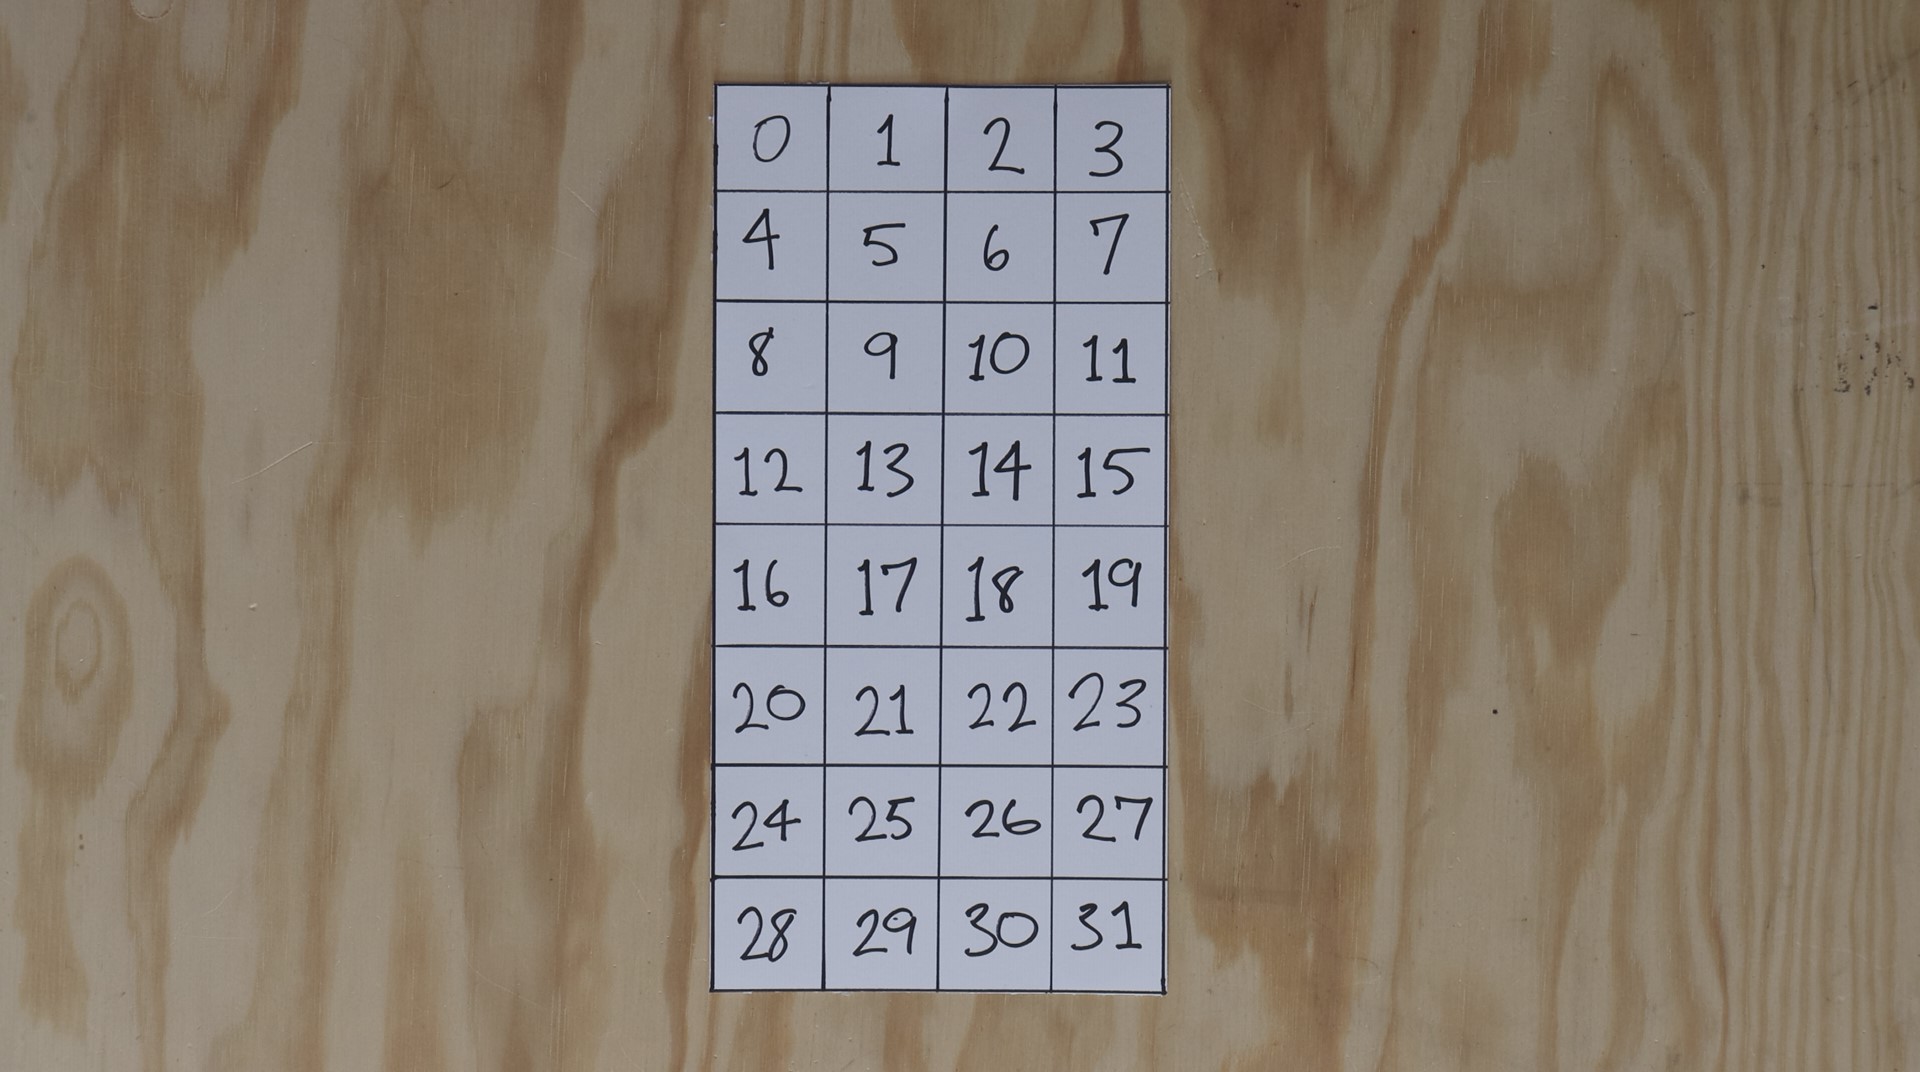 0 1 2 3
4 5 6 7
8 9 10 11
12 13 14 15
16 17 18 19
20 21 22 23
24 25 26 27
28 29 30 31